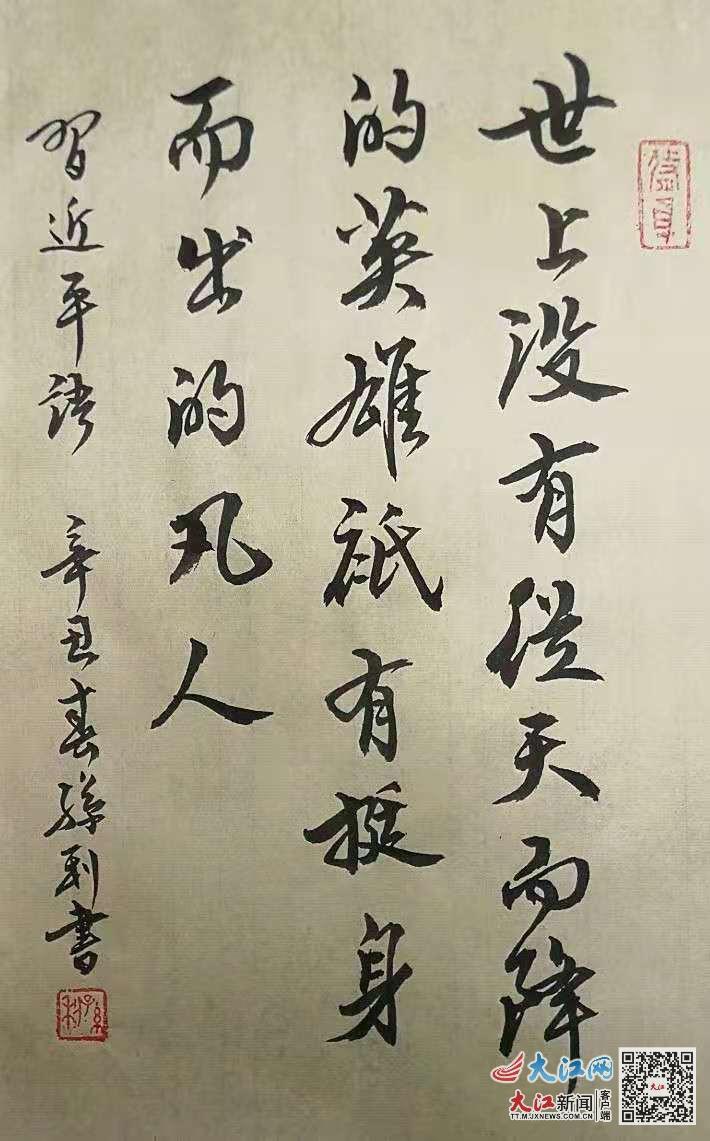 世上没有從天而降
的英雄祇有挺身
而出的凡人
習近平語 辛丑春孫利書
孫利
大江网
大江新闻 客户端
TT.M.JXNEWS.COM.CN
大江